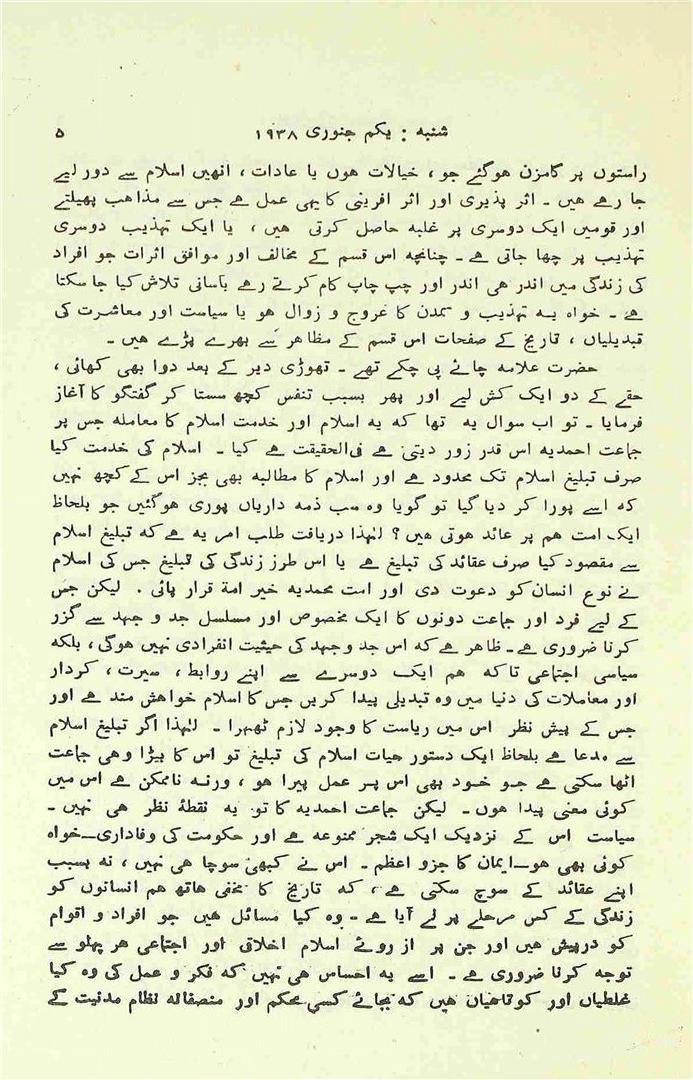 شنبه : یکم جنوری ۱۹۳۸ ۵
راستوں پر گامزن هوگئے جو ، خیالات هوں یا عادات ، انهیں اسلام سے دور لیے
جا رہے هیں ۔ اثر پذیری اور اثر افرینی کا یہی عمل هے جس سے مذاهب پھیلتے
اور قومیں ایک دوسری پر غلبه حاصل کرتی هیں ، یا ایک تہذیب دوسری
تہذیب پر چھا جاتی هے ۔ چنانچه اس قسم کے مخالف اور موافق اثرات جو افراد
کی زندگی میں اندر هی اندر اور چپ چاپ کام کرتے رهے بآسانی تلاش کیا جا سکتا
هے ۔ خواه یه تہذیب و تمدن کا عروج و زوال هو یا سیاست اور معاشرت کی
تبدیلیاں ، تاریخ کے صفحات اس قسم کے مظاهر سے بھرے پڑے هیں ۔
حضرت علامه چائے پی چکے تھے ۔ تھوڑی دیر کے بعد دوا بھی کھائی ،
حقے کے دو ایک کش لیے اور پھر بسبب تنفس کچھ سستا کر گفتگو کا آغاز
فرمایا ۔ تو اب سوال یه تھا که یه اسلام اور خدمت اسلام کا معامله جس پر
جماعت احمدیه اس قدر زور دیتی هے فی الحقیقت هے کیا ۔ اسلام کی خدمت کیا
صرف تبلیغ اسلام تک محدود هے اور اسلام کا مطالبه بھی بجز اس کے کچھ نہیں
که اسے پورا کر دیا گیا تو گویا وه سب ذمه داریاں پوری هوگئیں جو بلحاظ
ایک امت هم پر عائد هوتی هیں ؟ لہٰذا دریافت طلب امر یه هے که تبلیغ اسلام
سے مقصود کیا صرف عقائد کی تبلیغ هے یا اس طرز زندگی کی تبلیغ جس کی اسلام
نے نوع انسان کو دعوت دی اور امت محمدیه خیر امة قرار پائی . لیکن جس
کے لیے فرد اور جماعت دونوں کا ایک مخصوص اور مسلسل جد و جهد سے گزر
کرنا ضروری هے ۔ ظاهر هے که اس جد وجہد کی حیثیت انفرادی نہیں هوگی ، بلکه
سیاسی اجتماعی تاکه هم ایک دوسرے سے اپنے روابط ، سیرت ، کردار
اور معاملات کی دنیا میں وه تبدیلی پیدا کریں جس کا اسلام خواهش مند هے اور
جس کے پیش نظر اس میں ریاست کا وجود لازم ٹھہرا ۔ لہٰذا اگر تبلیغ اسلام
سے مدعا هے بلحاظ ایک دستور حیات اسلام کی تبلیغ تو اس کا بیڑا وهی جماعت
اٹھا سکتی هے جو خود بھی اس پر عمل پیرا هو ، ورنه ناممکن هے اس میں
کوئی معنی پیدا هوں ۔ لیکن جماعت احمدیه کا تو یه نقطۂ نظر هی نہیں ۔
سیاست اس کے نزدیک ایک شجر ممنوعه هے اور حکومت کی وفاداری—خواه
کوئی بھی هو—ایمان کا جزو اعظم ۔ اس نے کبھی سوچا هی نہیں ، نه بسبب
اپنے عقائد کے سوچ سکتی هے ، که تاریخ کا مخفی هاتھ هم انسانوں کو
زندگی کے کس مرحلے پر لے آیا هے ۔ وه کیا مسائل هیں جو افراد و اقوام
کو درپیش هیں اور جن پر از روئے اسلام اخلاقی اور اجتماعی هر پہلو سے
توجه کرنا ضروری هے ۔ اسے یه احساس هی نہیں که فکر و عمل کی وه کیا
غلطیاں اور کوتاهیاں هیں که بجائے کسی محکم اور منصفانه نظام مدنیت کے